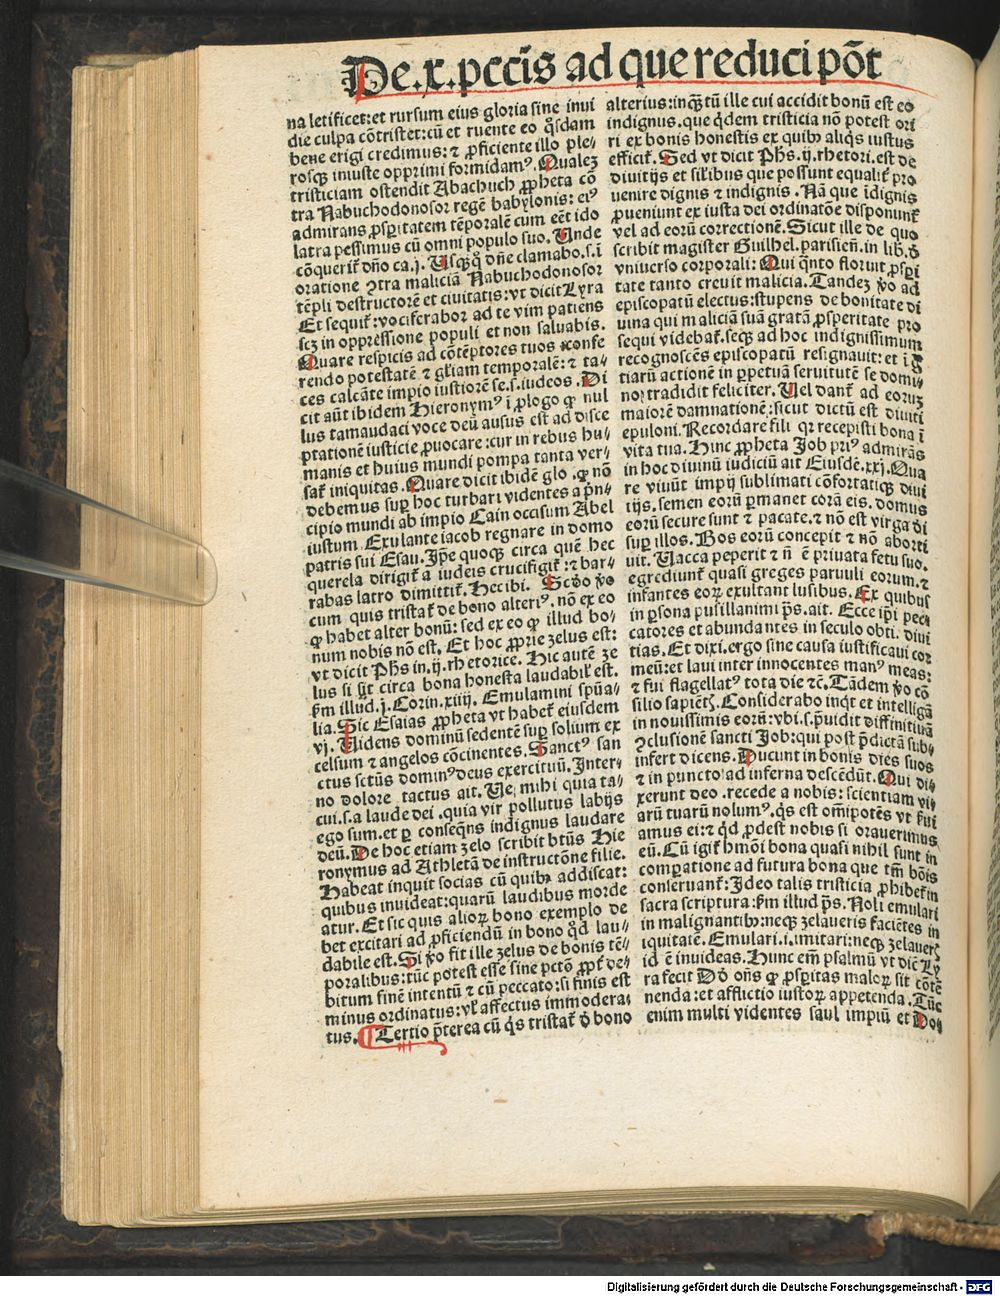 De.x.pccīs ad que reduci põt
na letificet:et rursum eius gloria sine inui
die culpa cõtristet:cũ et ruente eo q̃sdam
bene erigi credimus:⁊ ꝓficiente illo ple-
rosqꝫ iniuste opprimi formidamꝰ. Qualeꝫ
tristiciam ostendit Abachuch ꝓpheta cõ
tra Nabuchodonosor regẽ babylonis: eiꝰ
admirans ꝓsꝑitatem tẽporalẽ cum eẽt ido
latra pessimus cũ omni populo suo. Unde
cõquerit̃ dño ca.j. Usqꝫqꝫ dñe clamabo.s.i
oratione ꝯtra maliciã Nabuchodonosor
tẽpli destructorẽ et ciuitatis:vt dicit Lyra
Et sequit̃:vociferabor ad te vim patiens
scꝫ in oppressione populi et non saluabis.
Quare respicis ad cõtẽptores tuos ⁊confe
rendo potestatẽ ⁊ gl̃iam temporalẽ: ⁊ ta-
ces calcãte impio iustiorẽ se.s.iudeos. Di
cit aũt ibidem Hieronymꝰ ĩ ꝓlogo ꝙ nul
lus tamaudaci voce deũ ausus est ad disce
ptationẽ iusticie ꝓuocare:cur in rebus hu-
manis et huius mundi pompa tanta ver-
sat̃ iniquitas. Quare dicit ibidẽ glo. ꝙ nõ
debemus suꝑ hoc turbari videntes a p̃n-
cipio mundi ab impio Cain occisum Abel
iustum. Exulante iacob regnare in domo
patris sui Esau. Ip̃e quoqꝫ circa quẽ hec
querela dirigit̃ a iudeis crucifigit̃:⁊ bar-
rabas latro dimittit̃. Hec ibi. Scd̃o ṽo
cum quis tristat̃ de bono alteriꝰ. nõ ex eo
ꝙ habet alter bonũ: sed ex eo ꝙ illud bo-
num nobis nõ est. Et hoc ꝓprie zelus est:
vt dicit Phs in.ij.rhetorice. Hic autẽ ze
lus si sit circa bona honesta laudabil̃ est.
ẜm illud.j.Corin.xiiij. Emulamini spũa-
lia. Sic Esaias ꝓpheta vt habet̃ eiusdem
vj. Uidens dominũ sedentẽ suꝑ solium ex
celsum ⁊ angelos cõcinentes. Sanctꝰ san
ctus sctũs dominꝰdeus exercituũ. Inter-
no dolore tactus ait. Ue mihi quia ta-
cui.s.a laude dei.quia vir pollutus labijs
ego sum.et ꝑ conseq̃ns indignus laudare
deũ. De hoc etiam zelo scribit btũs Hie
ronymus ad Athletã de instructõne filie.
Habeat inquit socias cũ quibꝫ addiscat:
quibus inuideat:quarũ laudibus morde
atur. Et sic quis alioꝝ bono exemplo de
bet excitari ad ꝓficiendũ in bono q̃d lau-
dabile est. Si ṽo fit ille zelus de bonis tẽ-
poralibus:tũc potest esse sine pctõ ꝓpt̃ de-
bitum finẽ intentũ ⁊ cũ peccato:si finis est
minus ordinatus:vl̃ affectus immodera-
tus. ¶ Tertio p̃terea cũ q̃s tristat̃ d̃ bono
alterius:inqꝫtũ ille cui accidit bonũ est eo
indignus.que q̃dem tristicia nõ potest ori
ri ex bonis honestis ex quibꝫ aliq̃s iustus
efficit̃. Sed vt dicit Phs.ij.rhetori.est de
diuitijs et sil̃ibus que possunt equalit̃ pro
uenire dignis ⁊ indignis. Nã que ĩdignis
ꝓueniunt ex iusta dei ordinatõe disponunt̃
vel ad eorũ correctionẽ. Sicut ille de quo
scribit magister Guilhel.parisieñ.in lib.d̃
vniuerso corporali: Qui q̃nto floruit ꝓsꝑi
tate tanto creuit malicia. Tandeꝫ ṽo ad
episcopatũ electus:stupens de bonitate di
uina qui maliciã suã gratã ꝓsperitate pro
sequi videbat̃.seqꝫ ad hoc indignissimum
recognoscẽs episcopatũ resignauit: et ĩ g̃
tiarũ actionẽ in ꝑpetuã seruitutẽ se domi-
no tradidit feliciter. Uel dant̃ ad eoruꝫ
maiorẽ damnationẽ:sicut dictũ est diuiti
epuloni. Recordare fili qr recepisti bona ĩ
vita tua. Hinc ꝓpheta Job priꝰ admirãs
in hoc diuinũ iudiciũ ait Eiusdẽ.xxj. Qua
re viuũt impij sublimati cõfortatiqꝫ diui
tijs. semen eorũ ꝑmanet corã eis. domus
eorũ secure sunt ⁊ pacate.⁊ nõ est virga d̃i
suꝑ illos. Bos eorũ concepit ⁊ nõ aborti
uit. Uacca peperit ⁊ ñ ẽ priuata fetu suo.
egrediunt̃ quasi greges paruuli eorum.⁊
infantes eoꝝ exultant lusibus. Ex quibus
in ꝑsona pusillanimi p̃s.ait. Ecce ip̃i pec
catores et abundantes in seculo obti. diui
tias. Et dixi.ergo sine causa iustificaui cor
meũ:et laui inter innocentes manꝰ meas:
⁊ fui flagellatꝰ tota die ⁊c̃. Tãdem ṽo cõ
silio sapiẽtꝭ. Considerabo inqt et intelligã
in nouissimis eorũ:vbi.s.p̃uidit diffinitiuã
ꝯclusionẽ sancti Job:qui post p̃dictã sub-
infert dicens. Ducunt in bonis dies suos
⁊ in puncto ad inferna descẽdũt. Qui di-
xerunt deo.recede a nobis: scientiam vi-
arũ tuarũ nolumꝰ. q̃s est om̃ipotẽs vt ẜui
amus ei:⁊ q̃d ꝓdest nobis si orauerimus
eũ. Cũ igit̃ hmõi bona quasi nihil sunt in
comꝑatione ad futura bona que tm̃ bõis
conseruant̃: Ideo talis tristicia ꝓhibet̃in
sacra scriptura:ẜm illud p̃s. Noli emulari
in malignantibꝫ:neqꝫ zelaueris faciẽtes in
iquitatẽ. Emulari.i.imitari:neqꝫ zelauerꝭ
id ẽ inuideas. Hunc em̃ psalmũ vt dic̃ Ly
ra fecit Dd̃ oñs ꝙ ꝓsꝑitas maloꝝ sit cõtẽ
nenda:et afflictio iustoꝝ appetenda. Tũc
enim multi videntes saul impiũ et Doi-
Digitalisierung gefördert durch die Deutsche Forschungsgemeinschaft - DFG